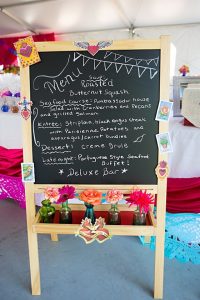 Menu
Soup
Roasted
Butternut Squash
Seafood Course: Ambassador house
Salad with Cranberries and Pecans
and grilled Salmon
Entreé: Striploin, black angus steak
with Parisienne Potatoes and
asparagus/carrot bundles
Dessert: creme Brulé
Late night: Portuguese Style Seafood
Buffet!
* Deluxe Bar *